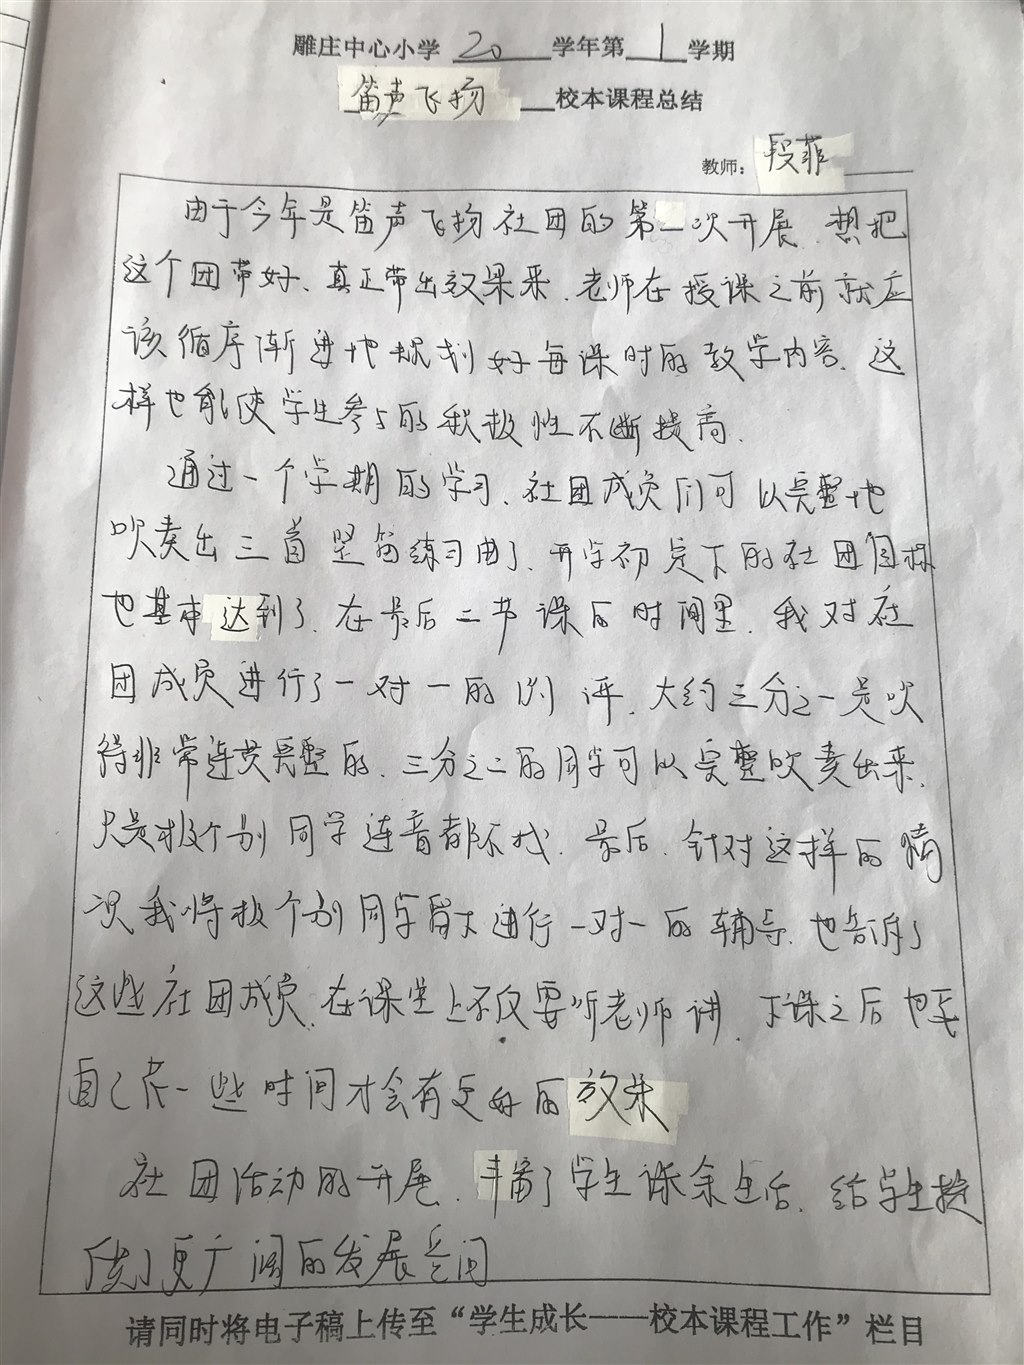 雕庄中心小学 20 学年第 1 学期
笛声飞扬 校本课程总结
教师：段菲
由于今年是笛声飞扬社团的第一次开展，想把
这个团带好、真正带出效果来，老师在授课之前就应
该循序渐进地规划好每课时的教学内容，这
样也能使学生参与的积极性不断提高。
通过一个学期的学习，社团成员们可以完整地
吹奏出三首竖笛练习曲了，开学初定下的社团目标
也基本达到了，在最后二节课的时间里，我对社
团成员进行了一对一的测评，大约三分之一是吹
得非常连贯完整的，三分之二的同学可以完整吹奏出来，
只是极个别同学连音都不找，最后，针对这样的情
况我将极个别同学留下进行一对一的辅导，也告诉了
这些社团成员，在课堂上不仅要听老师讲，下课之后也要
自己花一些时间才会有更好的效果
社团活动的开展，丰富了学生课余生活，给学生提
供了更广阔的发展空间
请同时将电子稿上传至“学生成长——校本课程工作”栏目